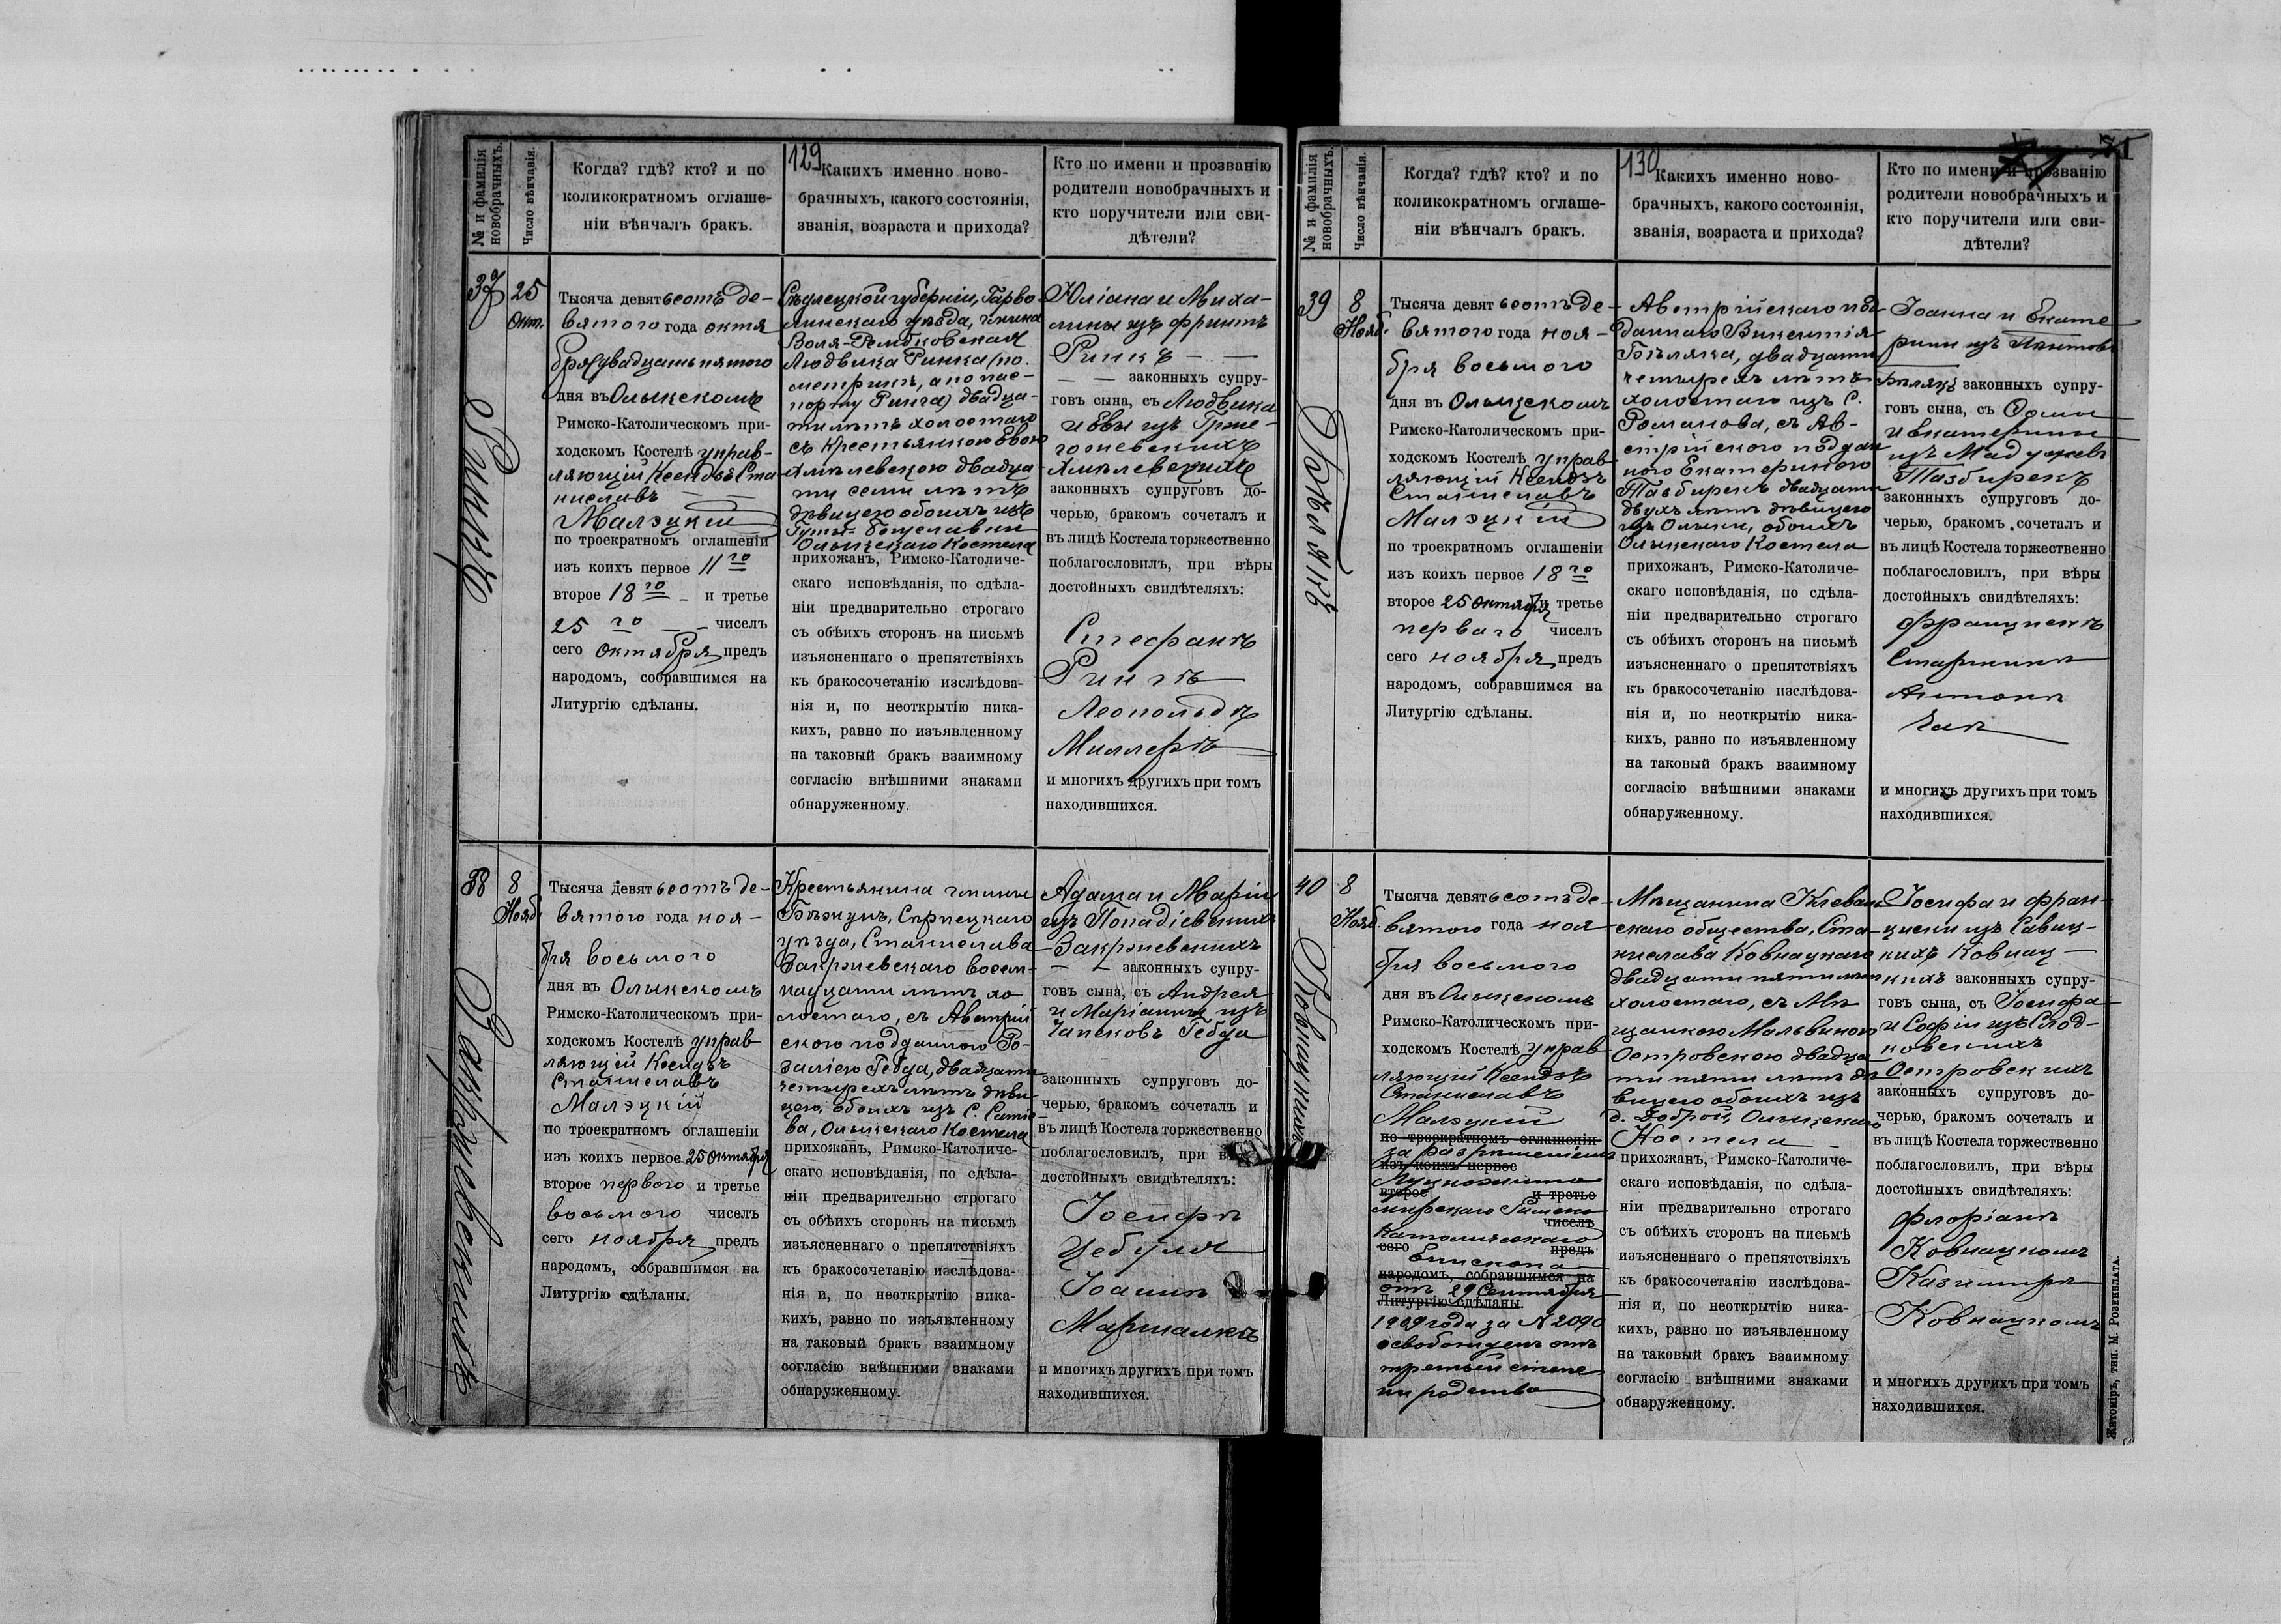 129
№ и фамилія новобрачныхъ.
Число вѣнчанія.
Когда? гдѣ? кто? и по
коликократномъ оглаше-
ніи вѣнчалъ бракъ.
Какихъ именно ново-
брачныхъ, какого состоянія,
званія, возраста и прихода?
Кто по имени и прозванію
родители новобрачныхъ и
кто поручители или сви-
дѣтели?
37
25
Окт.
Ринкъ
Тысяча девятьсотъ де-
вятого года октя
бря двадцать пятого
дня въ Олыкскомъ
Римско-Католическомъ при-
ходскомъ Костелѣ управ-
ляющій Ксендзъ Ста
ниславъ
Малэцкій
по троекратномъ оглашеніи
изъ коихъ первое 11го
второе 18го и третье
25го чиселъ
сего октября предъ
народомъ, собравшимся на
Литургію сдѣланы.
Сѣдлецкой губерніи, Гарво-
линскаго уѣзда, гмина
Воля-Рембковская
Людвика Ринка (по
метрикѣ, а по пас-
порту Ринга) двадца-
ти лѣтъ холостого
съ крестьянкою Евою
Хмѣлевскою двадца-
ти семи лѣтъ
дѣвицею обоихъ изъ
Олыкскаго Костела
прихожанъ, Римско-Католиче-
скаго исповѣданія, по сдѣла-
ніи предварительно строгаго
съ обѣихъ сторонъ на письмѣ
изъясненнаго о препятствіяхъ
къ бракосочетанію изслѣдова-
нія и, по неоткрытію ника-
кихъ, равно по изъявленному
на таковый бракъ взаимному
согласію внѣшними знаками
обнаруженному.
Юліана и Миха-
лины изъ Фринтъ
Ринкъ
законныхъ супру-
говъ сына, съ Людвика
и Евы изъ Грже-
гожевскихъ
Хмѣлевскихъ
законныхъ супруговъ до-
черью, бракомъ сочеталъ и
въ лицѣ Костела торжественно
поблагословилъ, при вѣры
достойныхъ свидѣтеляхъ:
Стефанъ
Рингъ
Леопольдъ
Миллеръ
и многихъ другихъ при томъ
находившихся.
38
8
Нояб.
Закржевскій
Тысяча девятьсотъ де-
вятого года ноя-
бря восьмого
дня въ Олыкскомъ
Римско-Католическомъ при-
ходскомъ Костелѣ управ
ляющій Ксендзъ
Станиславъ
Малэцкій
по троекратномъ оглашеніи
изъ коихъ первое 25 октября
второе первого и третье
восьмого чиселъ
сего ноября предъ
народомъ, собравшимся на
Литургію сдѣланы.
Крестьянина гмины
Бѣжунъ, Серпецкаго
уѣзда, Станислава
Закржевскаго восем-
надцати лѣтъ хо
лостого, съ Австрій
скою подданною Ро-
заліею Гебда, двадцати
четырехъ лѣтъ дѣви
цею, обоихъ изъ С.
Олыкскаго Костела
прихожанъ, Римско-Католиче-
скаго исповѣданія, по сдѣла-
ніи предварительно строгаго
съ обѣихъ сторонъ на письмѣ
изъясненнаго о препятствіяхъ
къ бракосочетанію изслѣдова-
нія и, по неоткрытію ника-
кихъ, равно по изъявленному
на таковый бракъ взаимному
согласію внѣшними знаками
обнаруженному.
Адама и Маріи
изъ Попадіевскихъ
Закржевскихъ
законныхъ супру-
говъ сына, съ Андрея
и Маріанны изъ
Чапсковъ Гебда
законныхъ супруговъ до-
черью, бракомъ сочеталъ и
въ лицѣ Костела торжественно
поблагословилъ, при
достойныхъ свидѣтеляхъ:
Іосифъ
Цебуля
Іоаннъ
Маршалкъ
и многихъ другихъ при томъ
находившихся.
130
71
№ и фамилія новобрачныхъ.
Число вѣнчанія.
Когда? гдѣ? кто? и по
коликократномъ оглаше-
ніи вѣнчалъ бракъ.
Какихъ именно ново-
брачныхъ, какого состоянія,
званія, возраста и прихода?
Кто по имени и прозванію
родители новобрачныхъ и
кто поручители или сви-
дѣтели?
39
8
Нояб.
Бѣлякъ
Тысяча девятьсотъ де-
вятого года ноя-
бря восьмого
дня въ Олыкскомъ
Римско-Католическомъ при-
ходскомъ Костелѣ управ
ляющій Ксендзъ
Станиславъ
Малэцкій
по троекратномъ оглашеніи
изъ коихъ первое 18го
второе 25 октября и третье
первого чиселъ
сего ноября предъ
народомъ, собравшимся на
Литургію сдѣланы.
Австрійскаго под-
даннаго Викентія
Бѣляка, двадцати
четырехъ лѣтъ
холостаго изъ С.
Романова, съ Ав-
стрійскою поддан
ною Екатериною
Тазбирекъ двадцати
двухъ лѣтъ дѣвицею
изъ Олыки, обоихъ
Олыкскаго Костела
прихожанъ, Римско-Католиче-
скаго исповѣданія, по сдѣла-
ніи предварительно строгаго
съ обѣихъ сторонъ на письмѣ
изъясненнаго о препятствіяхъ
къ бракосочетанію изслѣдова-
нія и, по неоткрытію ника-
кихъ, равно по изъявленному
на таковый бракъ взаимному
согласію внѣшними знаками
обнаруженному.
Іоанна и Екате
рины изъ
Бѣлякъ законныхъ супру-
говъ сына, съ Фомы
и Екатерины
изъ
Тазбирекъ
законныхъ супруговъ до-
черью, бракомъ сочеталъ и
въ лицѣ Костела торжественно
поблагословилъ, при вѣры
достойныхъ свидѣтеляхъ:
Францискъ
Антонъ
и многихъ другихъ при томъ
находившихся.
40
8
Нояб.
Ковнацкій
Тысяча девятьсотъ де-
вятого года ноя
бря восьмого
дня въ Олыкскомъ
Римско-Католическомъ при-
ходскомъ Костелѣ управ
ляющій Ксендзъ
Станиславъ
Малэцкій
по троекратномъ оглашеніи
за разрѣшеніемъ
изъ коихъ первое
Луцкожито
второе и третье
мирскаго Римско
чиселъ
Католическаго
сего предъ
Епископа
народомъ, собравшимся на
отъ 29 Сентября
Литургію сдѣланы.
1909 года за № 2090
освобожденъ отъ
третьей степе
ни родства
Мѣщанина Клеван-
скаго общества, Ста-
нислава Ковнацкаго
двадцати пяти лѣтъ
холостаго, съ Мѣ
щанкою Мальвиною
Островскою двадца
ти пяти лѣтъ дѣ
вицею обоихъ изъ
д. Доброй, Олыкскаго
Костела
прихожанъ, Римско-Католиче-
скаго исповѣданія, по сдѣла-
ніи предварительно строгаго
съ обѣихъ сторонъ на письмѣ
изъясненнаго о препятствіяхъ
къ бракосочетанію изслѣдова-
нія и, по неоткрытію ника-
кихъ, равно по изъявленному
на таковый бракъ взаимному
согласію внѣшними знаками
обнаруженному.
Іосифа и Фран-
циски изъ Савиц-
кихъ Ковнац-
кихъ законныхъ супру-
говъ сына, съ Іосифа
и Софіи изъ Слод-
ковскихъ
Островскихъ
законныхъ супруговъ до-
черью, бракомъ сочеталъ и
въ лицѣ Костела торжественно
поблагословилъ, при вѣры
достойныхъ свидѣтеляхъ:
Флоріанъ
Ковнацкомъ
Казимиръ
Ковнацкомъ
и многихъ другихъ при томъ
находившихся.
Житоміръ, тип. М. Розенблата.